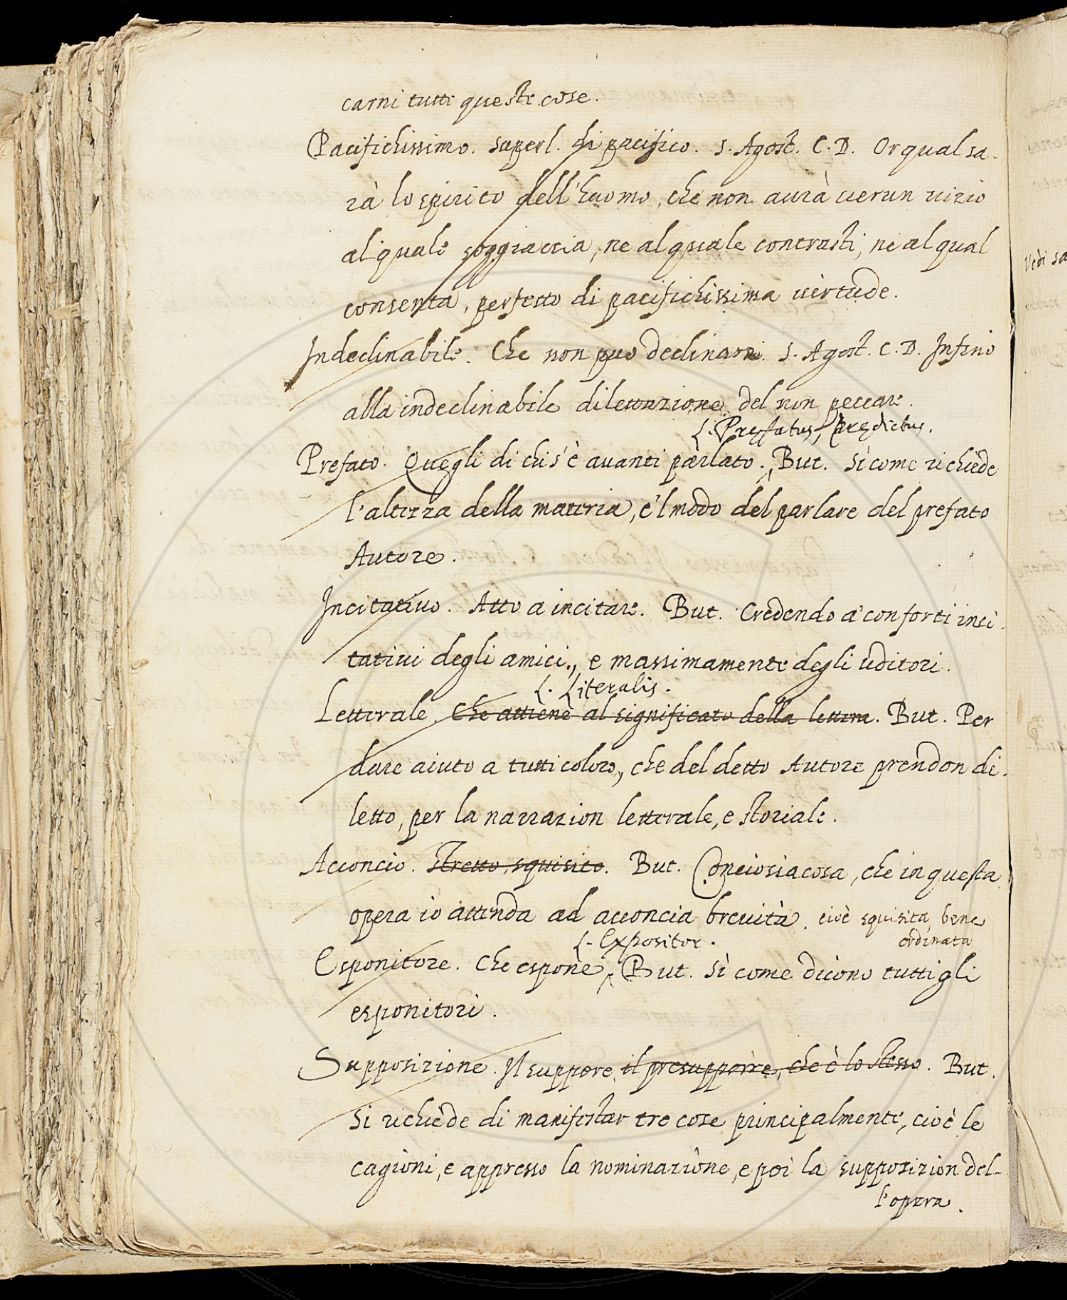 carni tutte queste cose.
Pacifichissimo. superl. di pacifico. S. Agost. C. D. Or qual sa-
rà lo spirito dell'huomo, che non aurà uerun uizio
al quale soggiaccia, ne al quale contrasti, ne al qual
consenta, perfetto di pacifichissima uertude.
Indeclinabile. Che non puo declinare. S. Agost. C. D. Infino
alla indeclinabile dilettazione del non peccare.
L. Pręfatus, prędictus.
Prefato. Quegli di chi s'è auanti parlato. But. Sì come richiede
l'altezza della materia, e'l modo del parlare del prefato
Autore.
Incitatiuo. Atto a incitare. But. Credendo a' conforti inci-
tatiui degli amici, e massimamente degli uditori.
L. Literalis.
Letterale, Che attiene al significato della lettera. But. Per
dare aiuto a tutti coloro, che del detto Autore prendon di-
letto, per la narrazion letterale, e storiale.
Acconcio. Stretto, squisito. But. Conciosiacosa, che in questa
opera io attenda ad acconcia breuità. cioè squisita, bene
ordinata
L. Expositor.
Esponitore. Che espone, But. Sì come dicono tutti gli
esponitori.
Supposizione. Il supporre, il presupporre, che è lo stesso. But.
Si richiede di manifestar tre cose principalmente, cioè le
cagioni, e appresso la nominazione, e poi la supposizion del-
l'opera.
Vedi sa